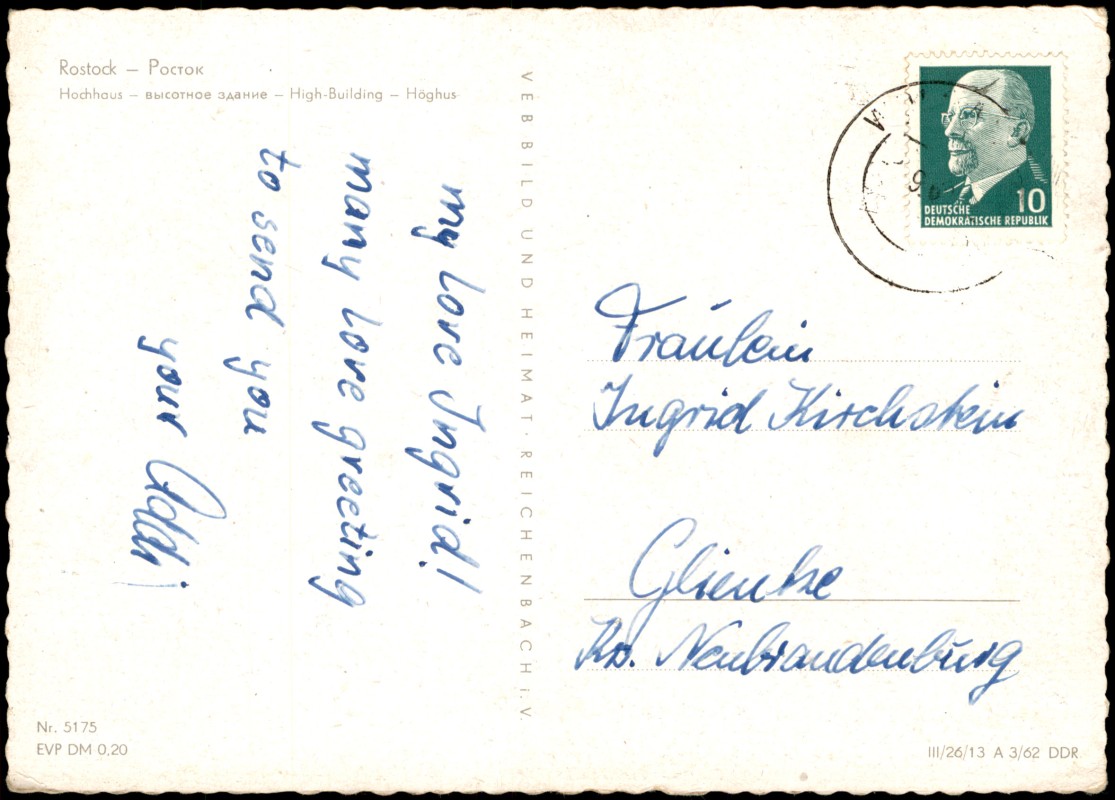 Rostock – Росток
Hochhaus – высотное здание – High-Building – Höghus
my love Ingrid!
many love greeting
to send you
your Addi!
VEB BILD UND HEIMAT · REICHENBACH i. V.
10
DEUTSCHE
DEMOKRATISCHE REPUBLIK
Fräulein
Ingrid Kirchstein
Glienke
Krs. Neubrandenburg
Nr. 5175
EVP DM 0,20
III/26/13 A 3/62 DDR